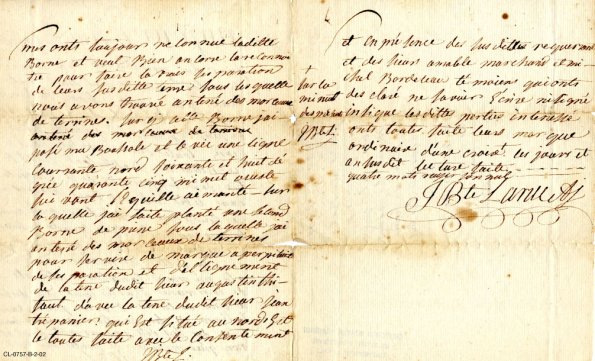 mes onts toujour reconnue la ditte
Borne et veul Bien encorre la reconnoi
tre pour faire la vrais separation
de leurs susditte terre sous les quelle
nous avons trouvé enteré des morceaux
de terrines. sur quoi la ditte Borne j'ai
enteré des morceaux de terrines
posé ma Bousole et tirée une ligne
Courrante nord soixante et huit de
grée quarante cinq minuit ouëste
suivant l'eguille aimanté sur
la quelle j'ai faite planté une segond
Borne de pierre sous la quelle j'ai
enteré des morceaux de terrines
pour servire de marque a perpetuité
de separation et d'elignement
de la terre dudit sieur augustin
taut d'avec la terre dudit sieur Jean
trépanier qui Est situé au nord Est
le toutes faite avec le consentement
JBte L.
et en présence des susdittes requerant
et des sieur amable marchans et mi
chel Bordeleau témoiens qui onts
declaré ne savoir Ecrire ni signé
insi que les dittes parties interéssé
onts toutes faite leurs marque
ordinaire d'une croix les jours et
an susdit lecture faite
quatre mots rayés sont nul
JBte Larue
CL-0757-B-2-02